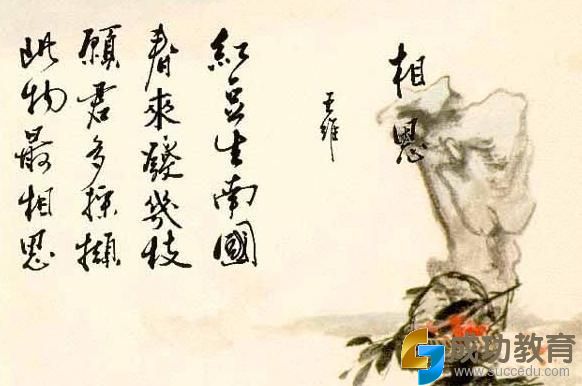 相思
王維
紅豆生南國
春來發幾枝
願君多採擷
此物最相思
成功教育
www.succedu.com